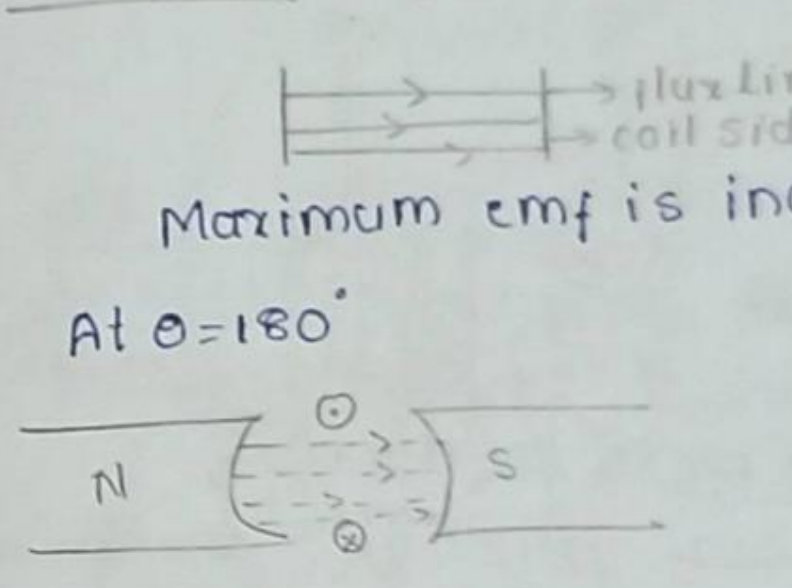 flux
coil
Maximum emf is
At θ=180°
N S